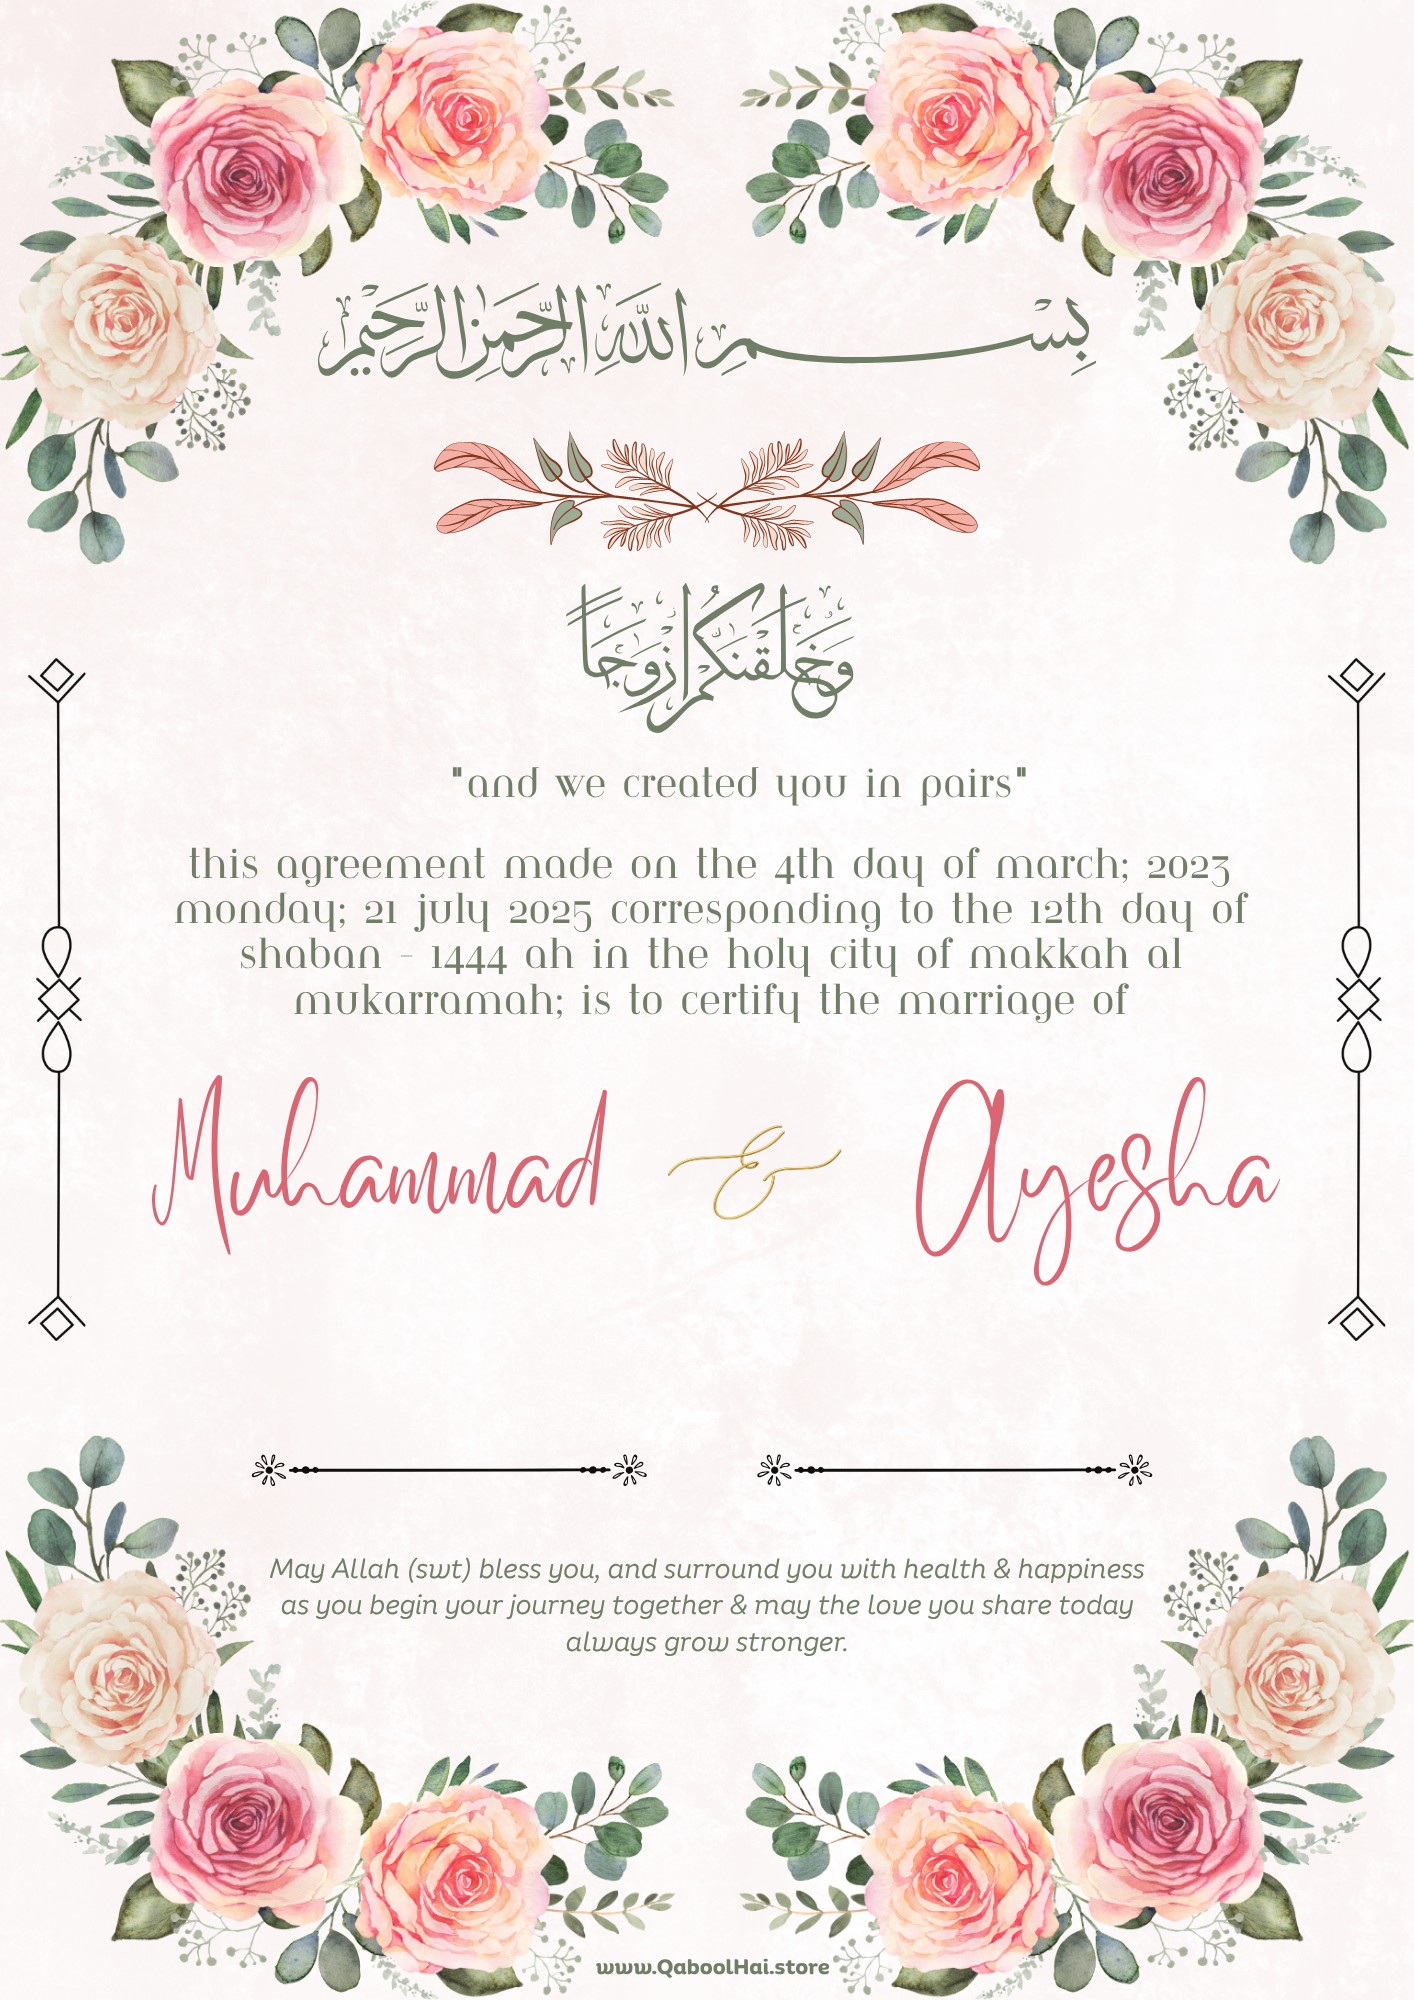 بِسْمِ اللهِ الرَّحْمٰنِ الرَّحِيْمِ
وَخَلَقْنٰكُمْ اَزْوَاجًا
"and we created you in pairs"
this agreement made on the 4th day of march; 2023
monday; 21 july 2025 corresponding to the 12th day of
shaban - 1444 ah in the holy city of makkah al
mukarramah; is to certify the marriage of
Muhammad & Ayesha
May Allah (swt) bless you, and surround you with health & happiness
as you begin your journey together & may the love you share today
always grow stronger.
www.QaboolHai.store